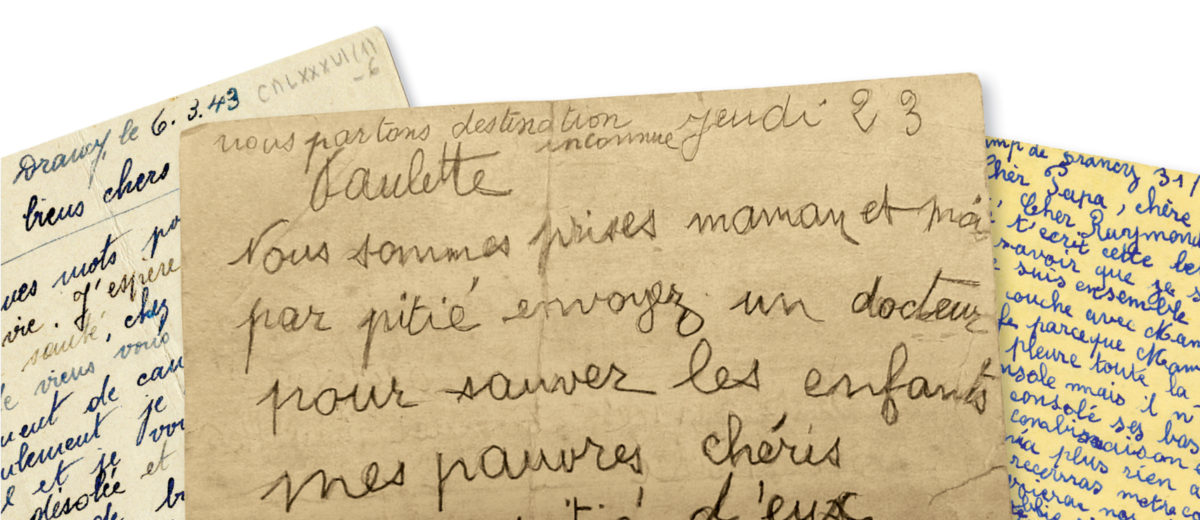 Drancy, le 6.3.43
CMLXXXVI(1)
-6
biens chers
ques mots
vie. J'espère
santé, chez
viens vous
ment de
ulement je
et je
désolée et
de
nous partons destination
inconnue
jeudi 23
Paulette
Nous sommes prises maman et moi
par pitié envoyez un docteur
pour sauver les enfants
mes pauvres chéris
d'eux
mp de Drancy 31/
Chèr Papa, chère
Cher Raymond
t'ecrit cette
savoir que je
suis ensemble
couche avec Mam
parceque Mam
pleure toute la
nsole mais il n
consolé ses
combinaison
plus rien
recevras